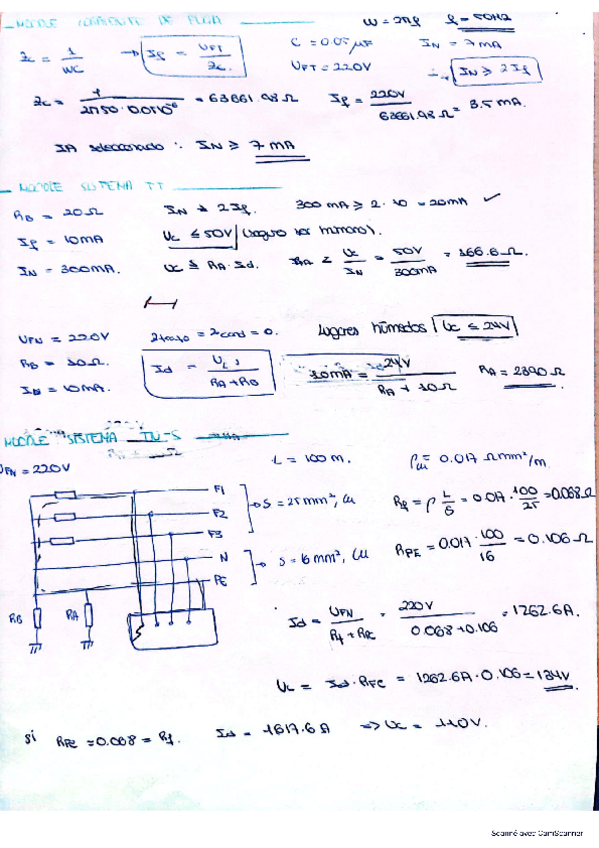 MODULE CORRIENTE DE FUGA
W = 2πf f = 50Hz
Zc = 1/WC → If = UFT/Zc
C = 0.05 μF
UFT = 220V
IN = 7 mA
∴ IN ≥ 2If
Zc = 1/(2π50·0.05·10⁻⁶) = 63661.98 Ω If = 220V/63661.98 Ω = 3.5 mA.
IA seleccionado : IN ≥ 7 mA
MODULE SISTEMA TT
RB = 20Ω IN ≥ 2If. 300 mA ≥ 2·10 = 20mA ✓
If = 10mA Uc ≤ 50V
IN = 300mA. Uc ≥ RA·Id. RA ≤ Uc/IN = 50V/300mA = 166.6 Ω.
UFN = 220V = Zcond = 0. Lugares húmedos Uc ≤ 24V
RB = 10Ω. Id = /(RA+RB) 10mA = 24V/(RA + 10Ω) RA = 2390 Ω
IN = 10mA.
MODULE SISTEMA TN-S
UFN = 220V
L = 100 m. ρcu = 0.017 Ωmm²/m
F1
F2
F3
→ S = 25mm², Cu
N
PE
→ S = 16 mm², Cu
RB
RA
Rf = ρ L/S = 0.017 · 100/25 = 0.068Ω
RPE = 0.017 · 100/16 = 0.106 Ω
Id = UFN/(Rf + RPE) = 220V/(0.068+0.106) = 1262.6A.
UL = Id·RPE = 1262.6A · 0.106 = 134V
si RPE = 0.068 = Rf. Id = 1617.6 A => Uc = 110V.
Scanné avec CamScanner